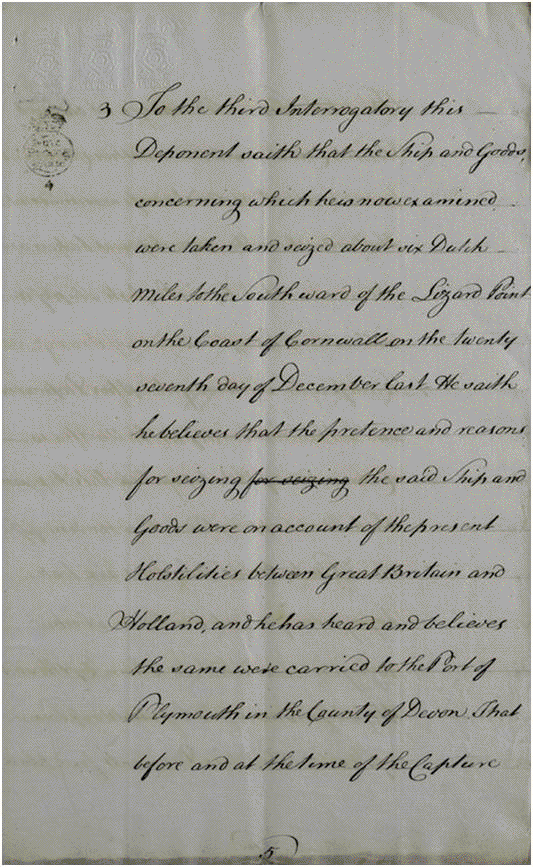 3 To the third Interrogatory this
Deponent saith that the Ship and Goods,
concerning which he is now examined
were taken and seized about six Dutch
Miles to the Southward of the Lizard Point
on the Coast of Cornwall on the twenty
seventh day of December last He saith
he believes that the pretence and reasons
for seizing for seizing the said Ship and
Goods were on account of the present
Hostilities between Great Britain and
Holland, and he has heard and believes
the same were carried to the Port of
Plymouth in the County of Devon That
before and at the time of the Capture
5